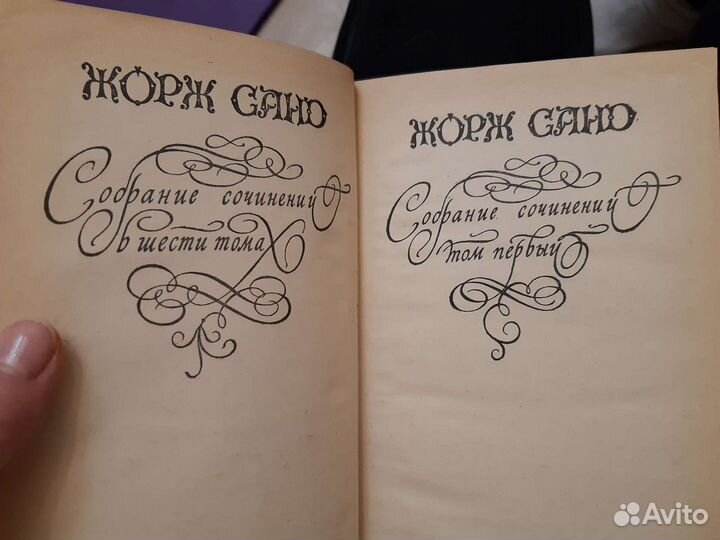 ЖОРЖ САНД
Собрание сочинений
в шести томах
ЖОРЖ САНД
Собрание сочинений
том первый
Avito